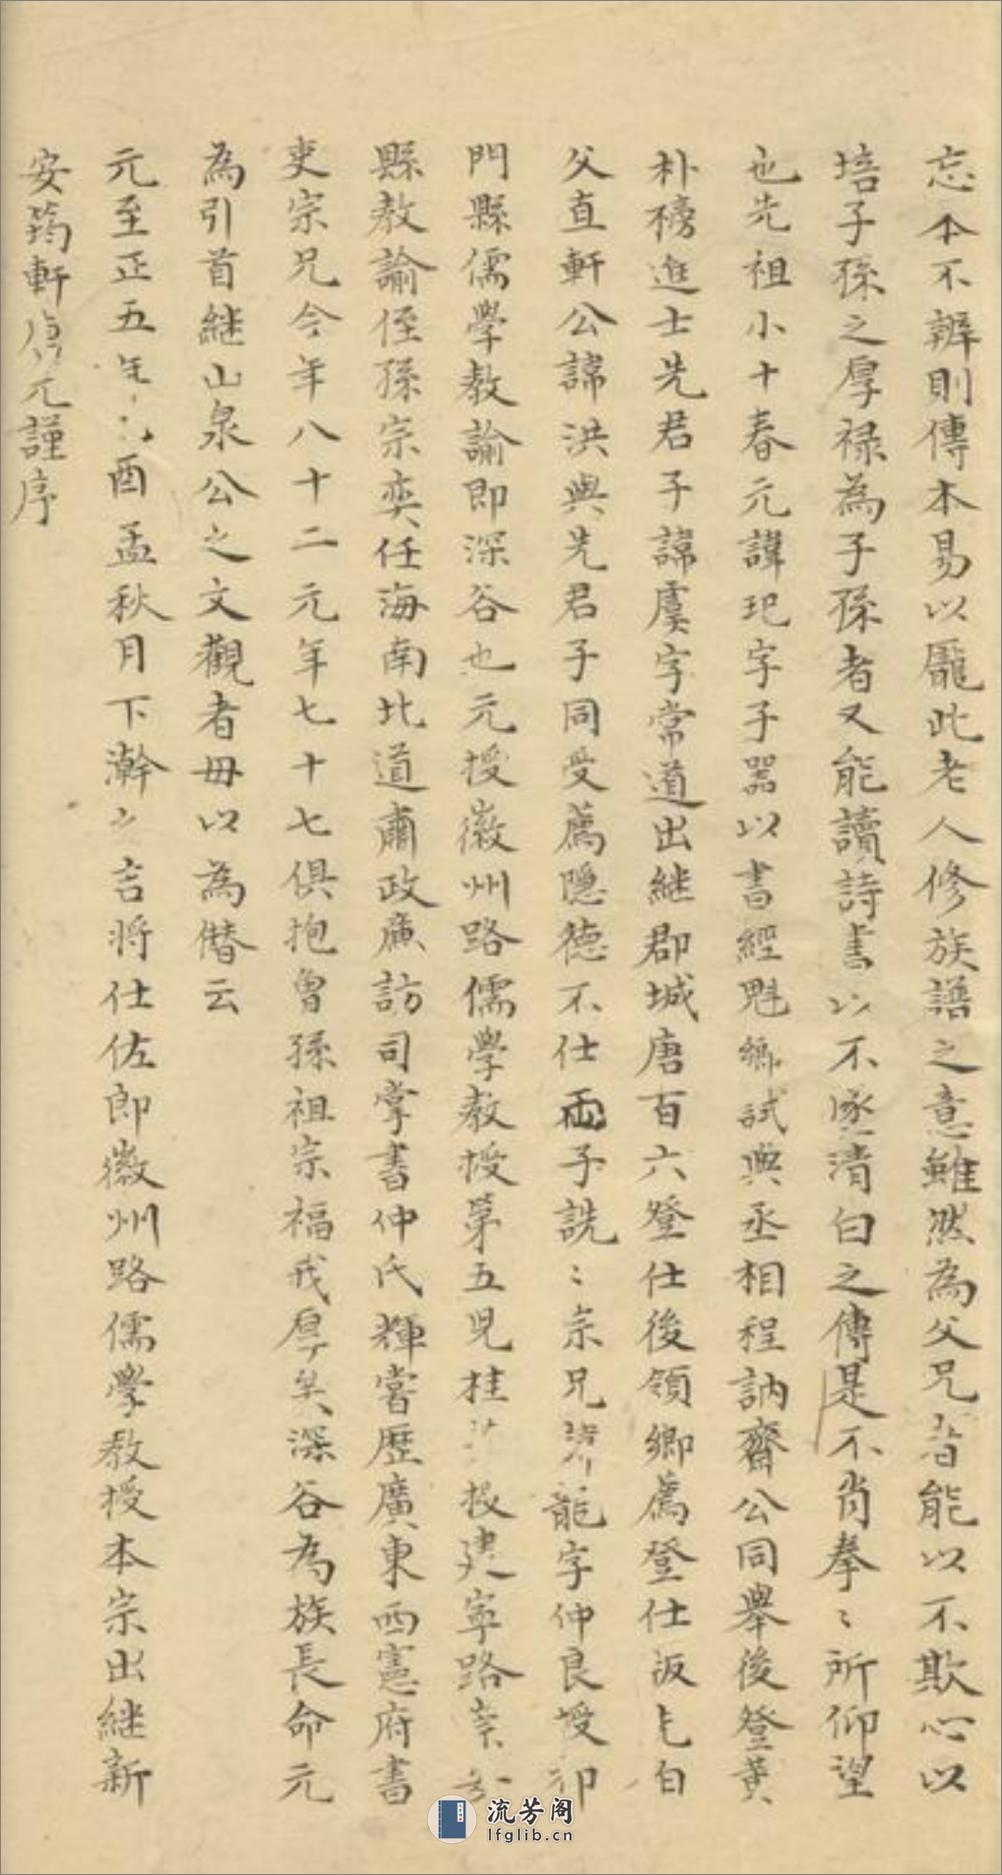 忘本不辨則傳本易以龐此老人修族譜之意雖然為父兄者能以不欺心以
培子孫之厚祿為子孫者又能讀詩書以不墜清白之傳是不肖拳〻所仰望
也先祖小十春元諱玘字子器以書經魁鄉試與丞相程訥齋公同舉後登黃
朴榜進士先君子諱虞字常道出継郡城唐百六登仕後領鄉薦登仕版七白
父直軒公諱洪與先君子同受薦隱德不仕両子詵〻宗兄龍字仲良授
門縣儒學教諭即深谷也元授徽州路儒學教授第五児桂授建寧路
縣教諭侄孫宗奕任海南北道肅政廉訪司掌書仲氏輝嘗歷廣東西憲府書
吏宗兄今年八十二元年七十七俱抱曾孫祖宗福我厚矣深谷為族長命元
為引首継山泉公之文觀者毋以為僭云
元至正五年酉孟秋月下澣之吉将仕佐郎徽州路儒學教授本宗出継新
安筠軒元謹序
流芳阁
lfglib.cn